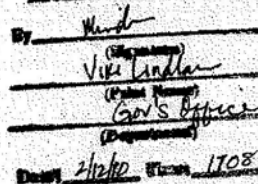 By
(Signature)
Viki Lindlau
(Print Name)
Gov's Office
(Department)
Date: 2/12/10 Time: 1708